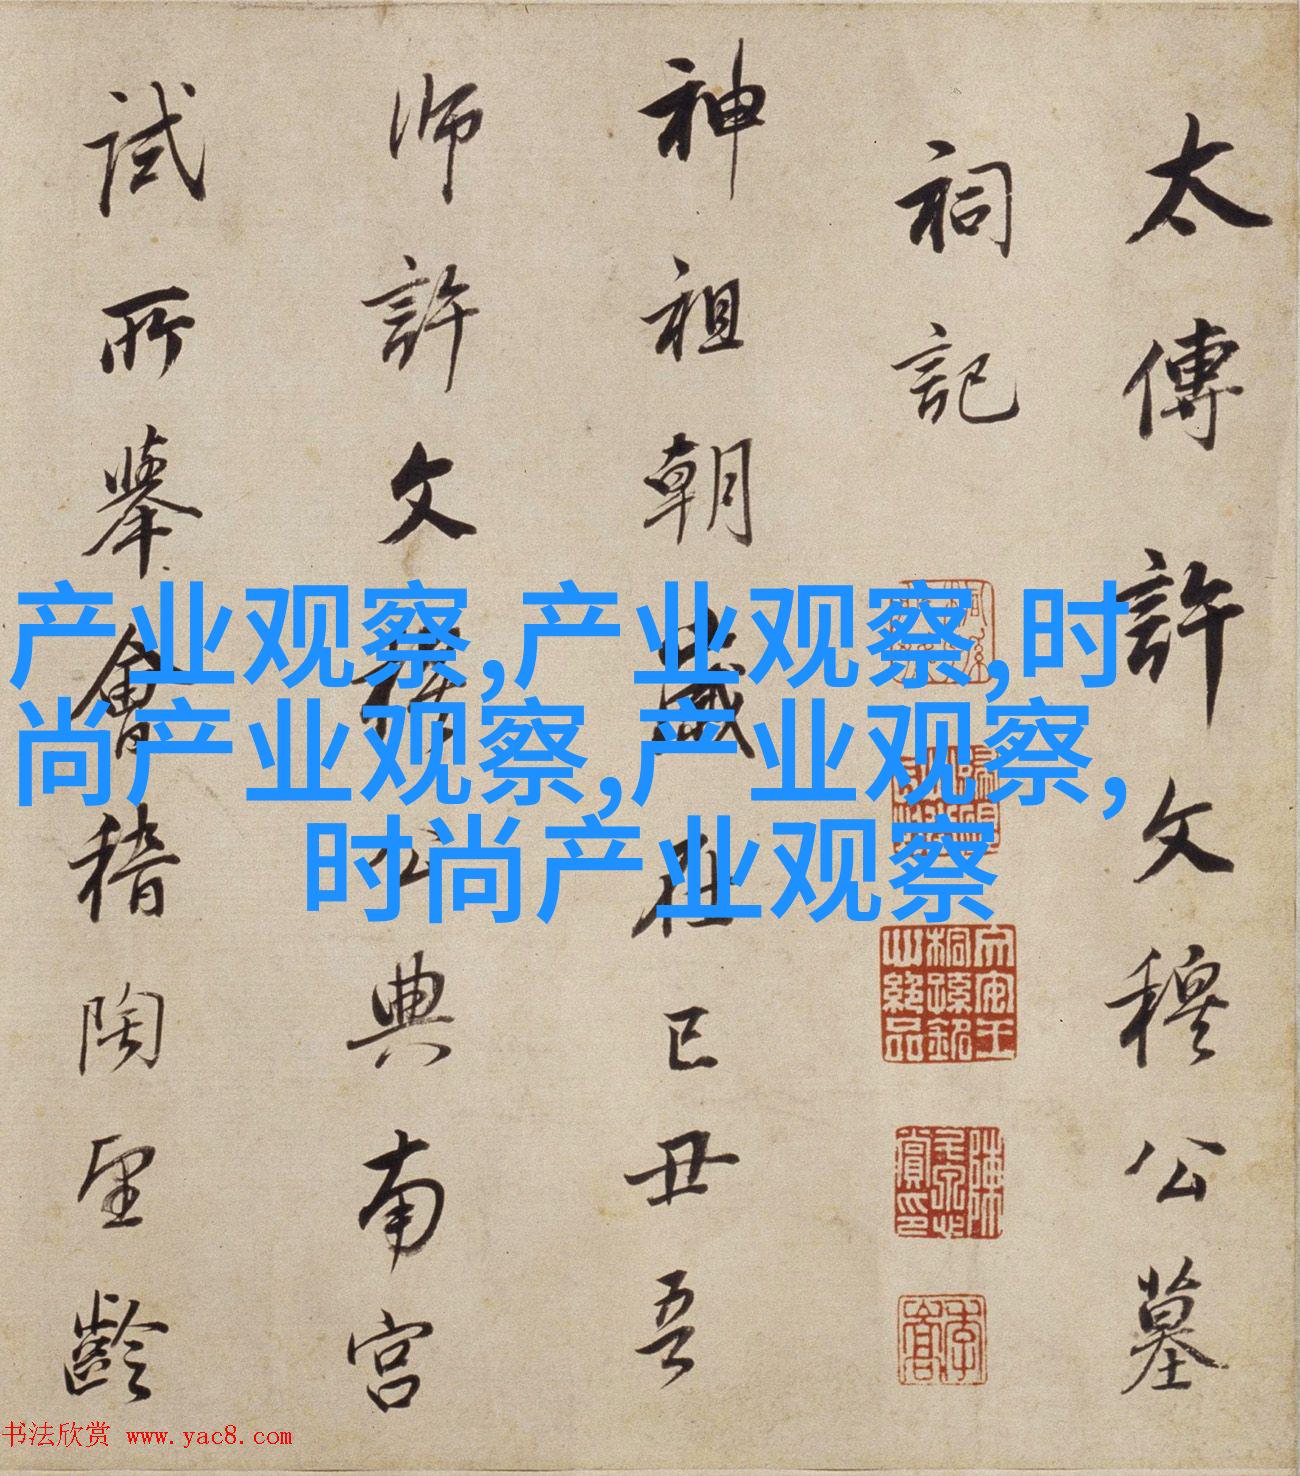 太傅許文穆公墓
祠記
神祖朝歲在己丑吾
師許文穆公典南宮
試所舉會稽陶望齡
产业观察,产业观察,时
尚产业观察,产业观察,
时尚产业观察
书法欣赏 www.yac8.com